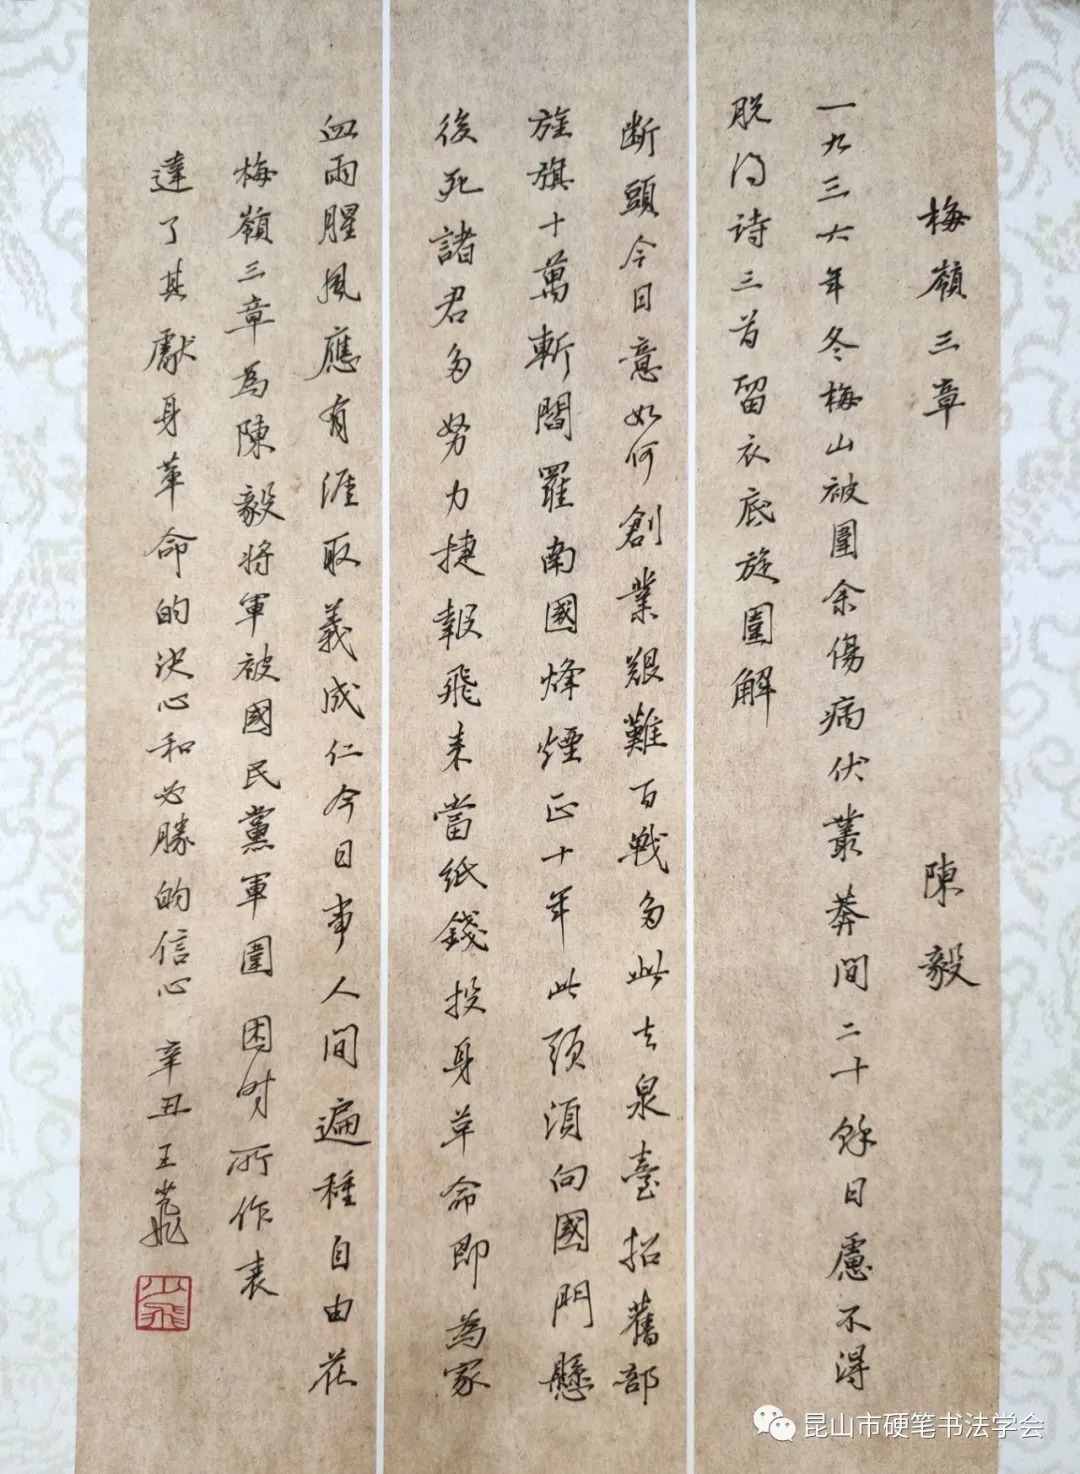 梅嶺三章 陳毅
一九三六年冬梅山被圍余傷病伏叢莽間二十餘日慮不得
脱得诗三首留衣底旋圍解
断頭今日意如何創業艱難百戦多此去泉臺招舊部
旌旗十萬斬閻羅南國烽煙正十年此頭須向國門懸
後死諸君多努力捷報飛來當紙錢投身革命即為家
血雨腥風應有涯取義成仁今日事人間遍種自由花
梅嶺三章為陳毅将軍被國民黨軍圍困时所作表
達了其獻身革命的决心和必勝的信心 辛丑 王
昆山市硬笔书法学会